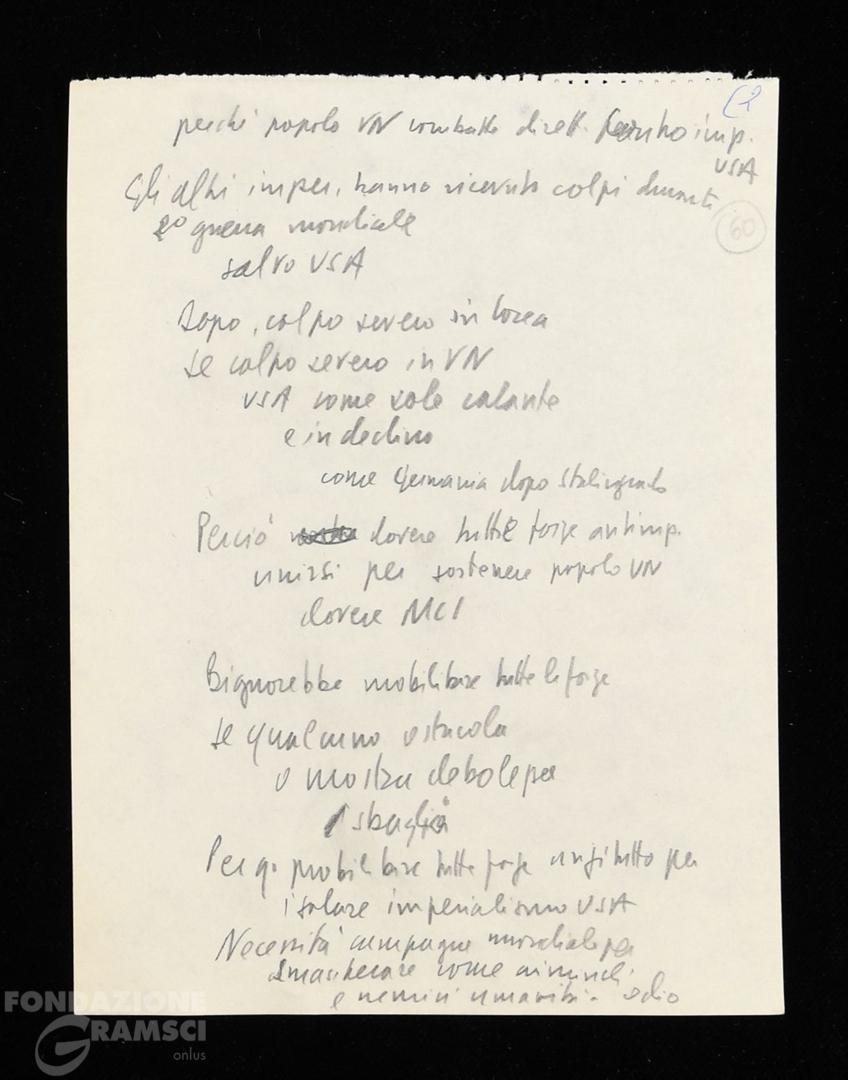 (2
perché popolo VN combatte dirett. contro imp.
USA
Gli altri imper. hanno ricevuto colpi durante
2º guerra mondiale
60
salvo USA
Dopo, colpo severo in Corea
Se colpo severo in VN
USA come sole calante
e in declino
come Germania dopo Stalingrado
Perciò dovere tutte forze antimp.
unirsi per sostenere popolo VN
dovere MCI
Bignorebbe mobilitare tutte le forze
Se qualcuno ostacola
o mostra debolezza
sbaglia
Per q. mobilitare tutte forze anzitutto per
isolare imperialismo USA
Necessità campagna mondiale per
smascherare come criminali
e nemici umanità. odio
FONDAZIONE
GRAMSCI
onlus